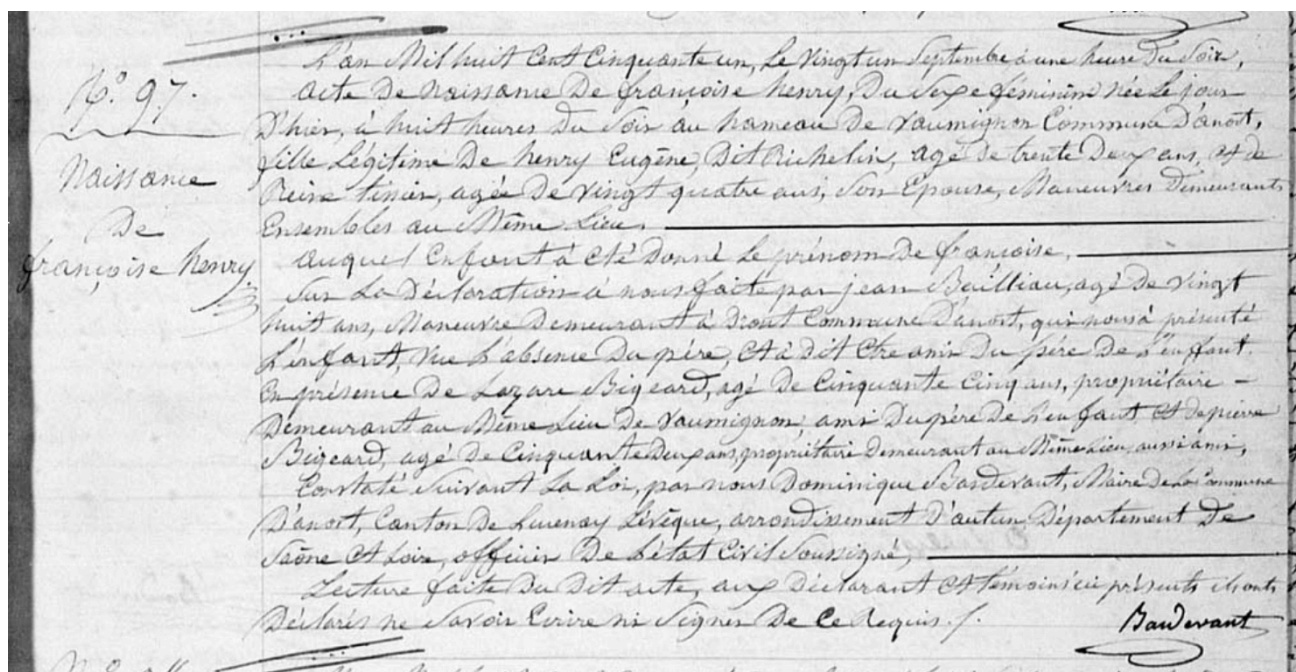 N.º 97.
Naissance
De
françoise henry
L'an Mil huit Cent Cinquante un, Le Vingt un Septembre, à une heure Du Soir,
acte De Naissance De françoise henry, Du Sexe féminin Née Le jour
D'hier, à huit heures Du Soir au hameau De Vaumignon Commune D'anost,
fille Légitime De henry Eugène, Dit Richelin, agé De trente Deux ans, et de
Reine tixier, agée De Vingt quatre ans, Son Epouse, Maneuvres Demeurants
Ensembles au Même Lieu,
auquel Enfant à été Donné Le prénom De françoise,
Sur La Déclaration à nous faite par jean Bailliau, agé De Vingt
huit ans, Maneuvre Demeurant à Dront Commune D'anost, qui nous à présenté
L'enfant, Vue L'absence Du père, Et à dit être ami Du père De L'enfant
En présence De Lazare Bigeard, agé De Cinquante Cinq ans, propriétaire -
Demeurant au Même Lieu De Vaumignon, ami Du père De L'enfant, Et de pierre
Bigeard, agé De Cinquante Deux ans, propriétaire Demeurant au Même Lieu, aussi ami,
Constaté Suivant La Loi, par nous Dominique Baudevant, Maire De La Commune
D'anost, Canton De Lucenay Lévêque, arrondissement D'autun, Département De
Saône Et Loire, officier De L'état Civil Soussigné,
Lecture faite Du Dit acte, aux Déclarant Et témoins ici présents ils onts
Déclarés ne Savoir Ecrire ni Signer De Ce Requis ./.
Baudevant